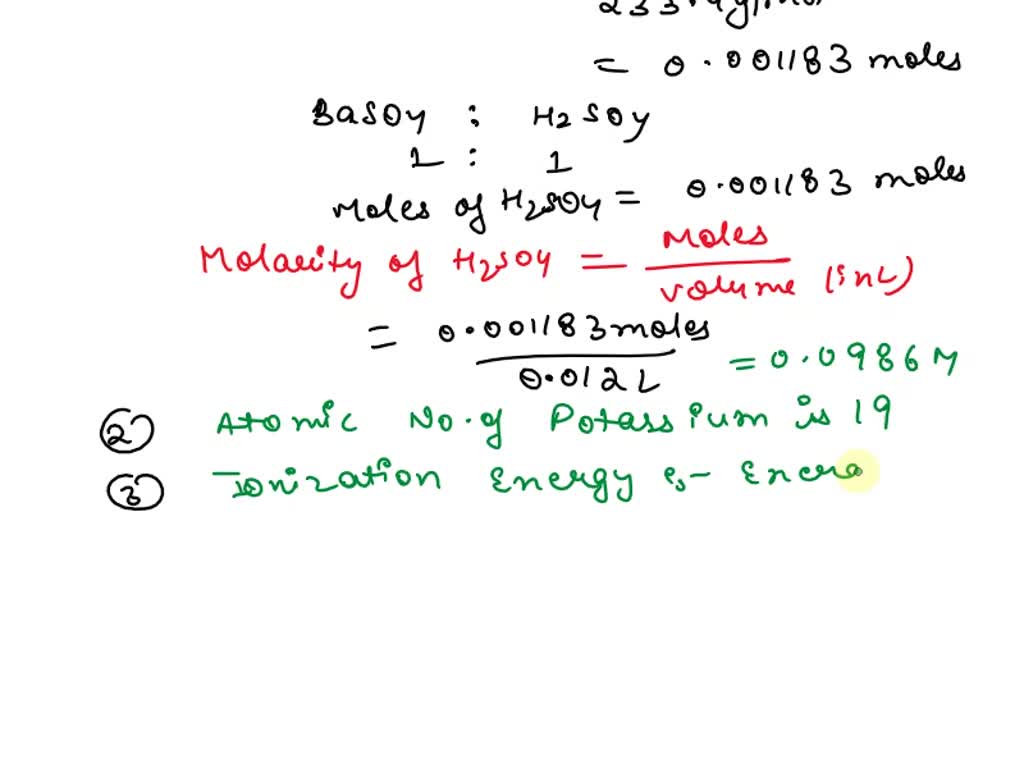 = 0.001183 moles
BaSO4 : H2SO4
1 : 1
Moles of H2SO4 = 0.001183 moles
Molarity of H2SO4 = Moles / volume (in L)
= 0.001183 moles / 0.012 L = 0.0986 M
② Atomic No. of Potassium is 19
③ Ionization Energy :- Ener